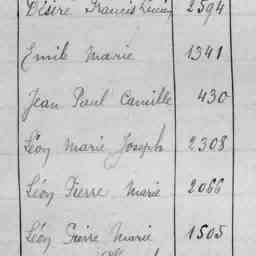 Désiré Francis Lucien 2594
Emile Marie 1341
Jean Paul Camille 430
Léon Marie Joseph 2308
Léon Pierre Marie 2066
Léon Pierre Marie 1505